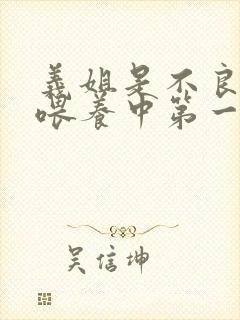 義姐是不良
喂养中第一
吴信坤